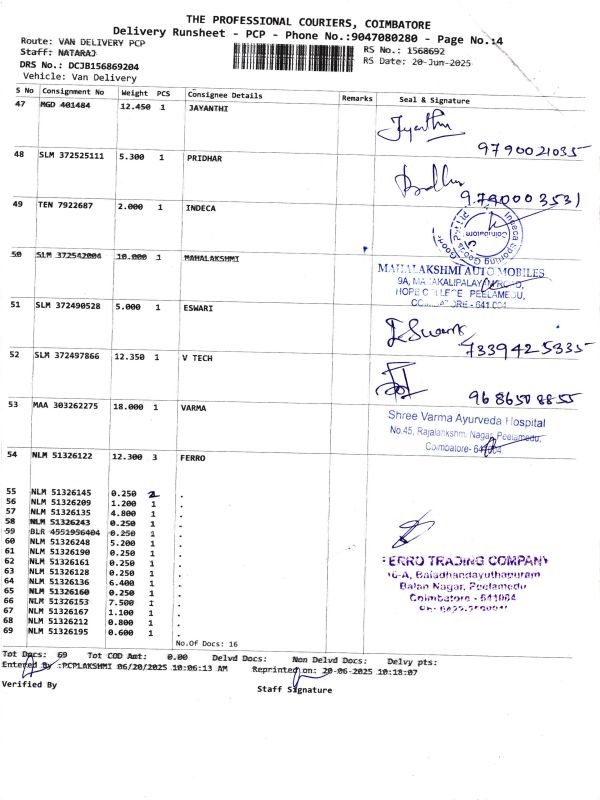 THE PROFESSIONAL COURIERS, COIMBATORE
Delivery Runsheet - PCP - Phone No.:9047080280 - Page No.:4
Route: VAN DELIVERY PCP
RS No.: 1568692
Staff: NATARAJ
RS Date: 20-Jun-2025
DRS No.: DCJB156869204
Vehicle: Van Delivery
S No Consignment No Weight PCS Consignee Details Remarks Seal & Signature
47 MGD 401484 12.450 1 JAYANTHI
Jayanthi
9790021035
48 SLM 372525111 5.300 1 PRIDHAR
9790003531
49 TEN 7922687 2.000 1 INDECA
Indeca Sporting Goods Pvt Ltd
Coimbatore
50 SLM 372542004 10.000 1 MAHALAKSHMI
MAHALAKSHMI AUTO MOBILES
9A, MAHAKALIPALAYAM ROAD,
HOPE COLLEGE PEELAMEDU,
COIMBATORE - 641 004.
51 SLM 372490528 5.000 1 ESWARI
Eswari
7339425335
52 SLM 372497866 12.350 1 V TECH
9686508855
53 MAA 303262275 18.000 1 VARMA
Shree Varma Ayurveda Hospital
No.45, Rajalankshmi Nagar, Peelamedu,
Coimbatore- 641004.
54 NLM 51326122 12.300 3 FERRO
55 NLM 51326145 0.250 2 .
56 NLM 51326209 1.200 1 .
57 NLM 51326135 4.800 1 .
58 NLM 51326243 0.250 1 .
59 BLR 4551956404 0.250 1 .
60 NLM 51326248 5.200 1 .
61 NLM 51326190 0.250 1 .
62 NLM 51326161 0.250 1 .
63 NLM 51326128 0.250 1 .
64 NLM 51326136 6.400 1 .
65 NLM 51326160 0.250 1 .
66 NLM 51326153 7.500 1 .
67 NLM 51326167 1.100 1 .
68 NLM 51326212 0.800 1 .
69 NLM 51326195 0.600 1 .
FERRO TRADING COMPANY
16-A, Baladhandayuthapuram
Balan Nagar, Peelamedu
Coimbatore - 641004
No.Of Docs: 16
Tot Docs: 69 Tot COD Amt: 0.00 Delvd Docs: Non Delvd Docs: Delvy pts:
Entered By :PCPLAKSHMI 06/20/2025 10:06:13 AM Reprinted on: 20-06-2025 10:18:07
Verified By
Staff Signature